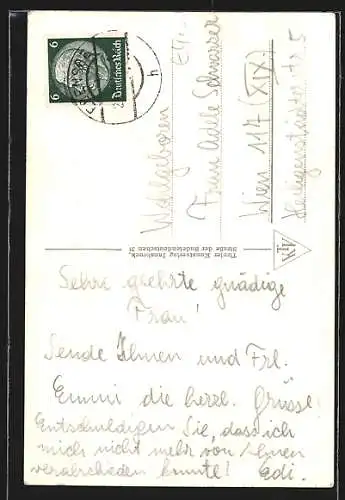 6 6
Deutsches Reich
Wohlgeboren
Frau Adele Schwarzer
Wien 117 (XIX)
Heiligenstädterstr. 5
Tiroler Kunstverlag Innsbruck,
Straße der Sudetendeutschen 31
Sehr geehrte gnädige
Frau!
Sende Ihnen und Frl.
Emmi die herzl. Grüsse!
Entschuldigen Sie, dass ich
mich nicht mehr von Ihnen
verabschieden konnte! Edi.